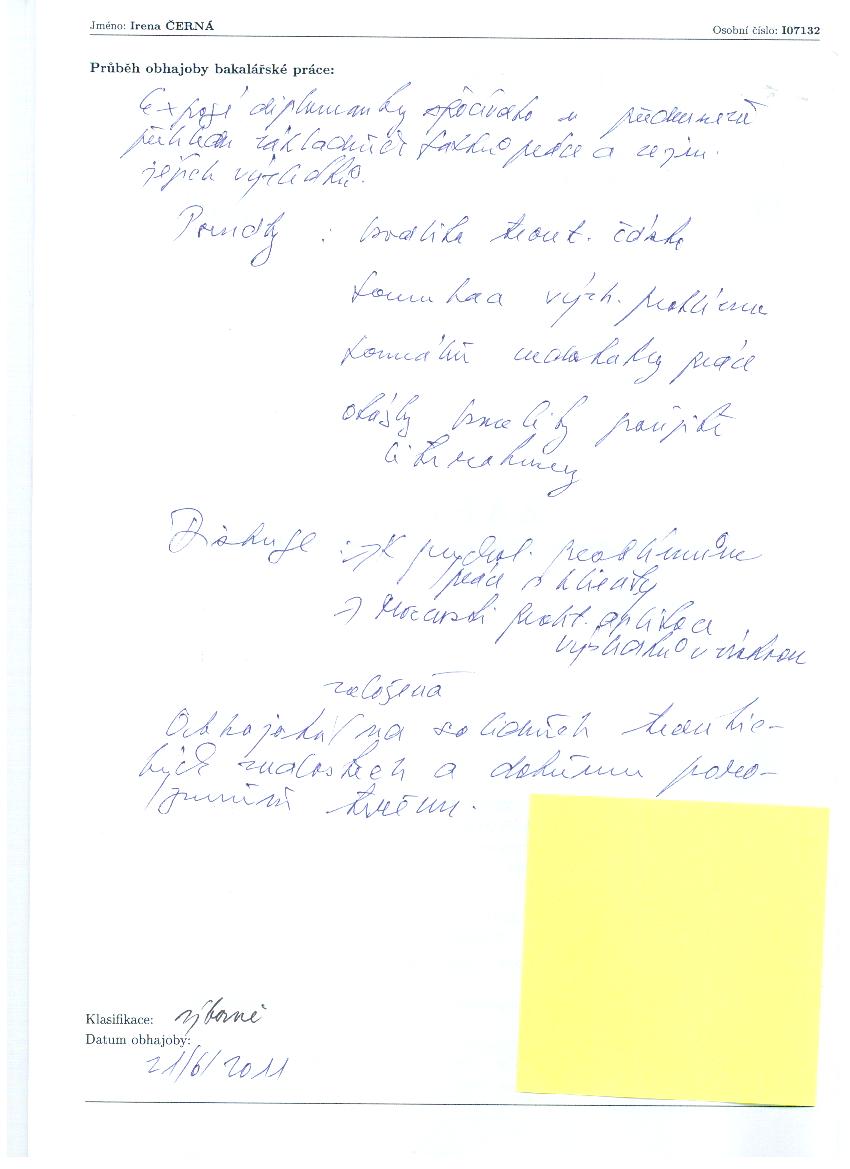 Jméno: Irena ČERNÁ
Osobní číslo: I07132
Průběh obhajoby bakalářské práce:
Exposé diplomantky spočívalo v
základních práce a zejm.
jejích výsledků.
Posudky : kvalita teoret. části
výzk. problému
formální nedostatky práce
otázky kvality použité
literatury
Diskuse : K psychol. problémům
práce s klienty
prakt. aplikace
výsledků v
založená
Obhajoba na solidních teoretic-
kých znalostech a dobrému poro-
zumění tématu.
Klasifikace: výborně
Datum obhajoby:
21/6/2011